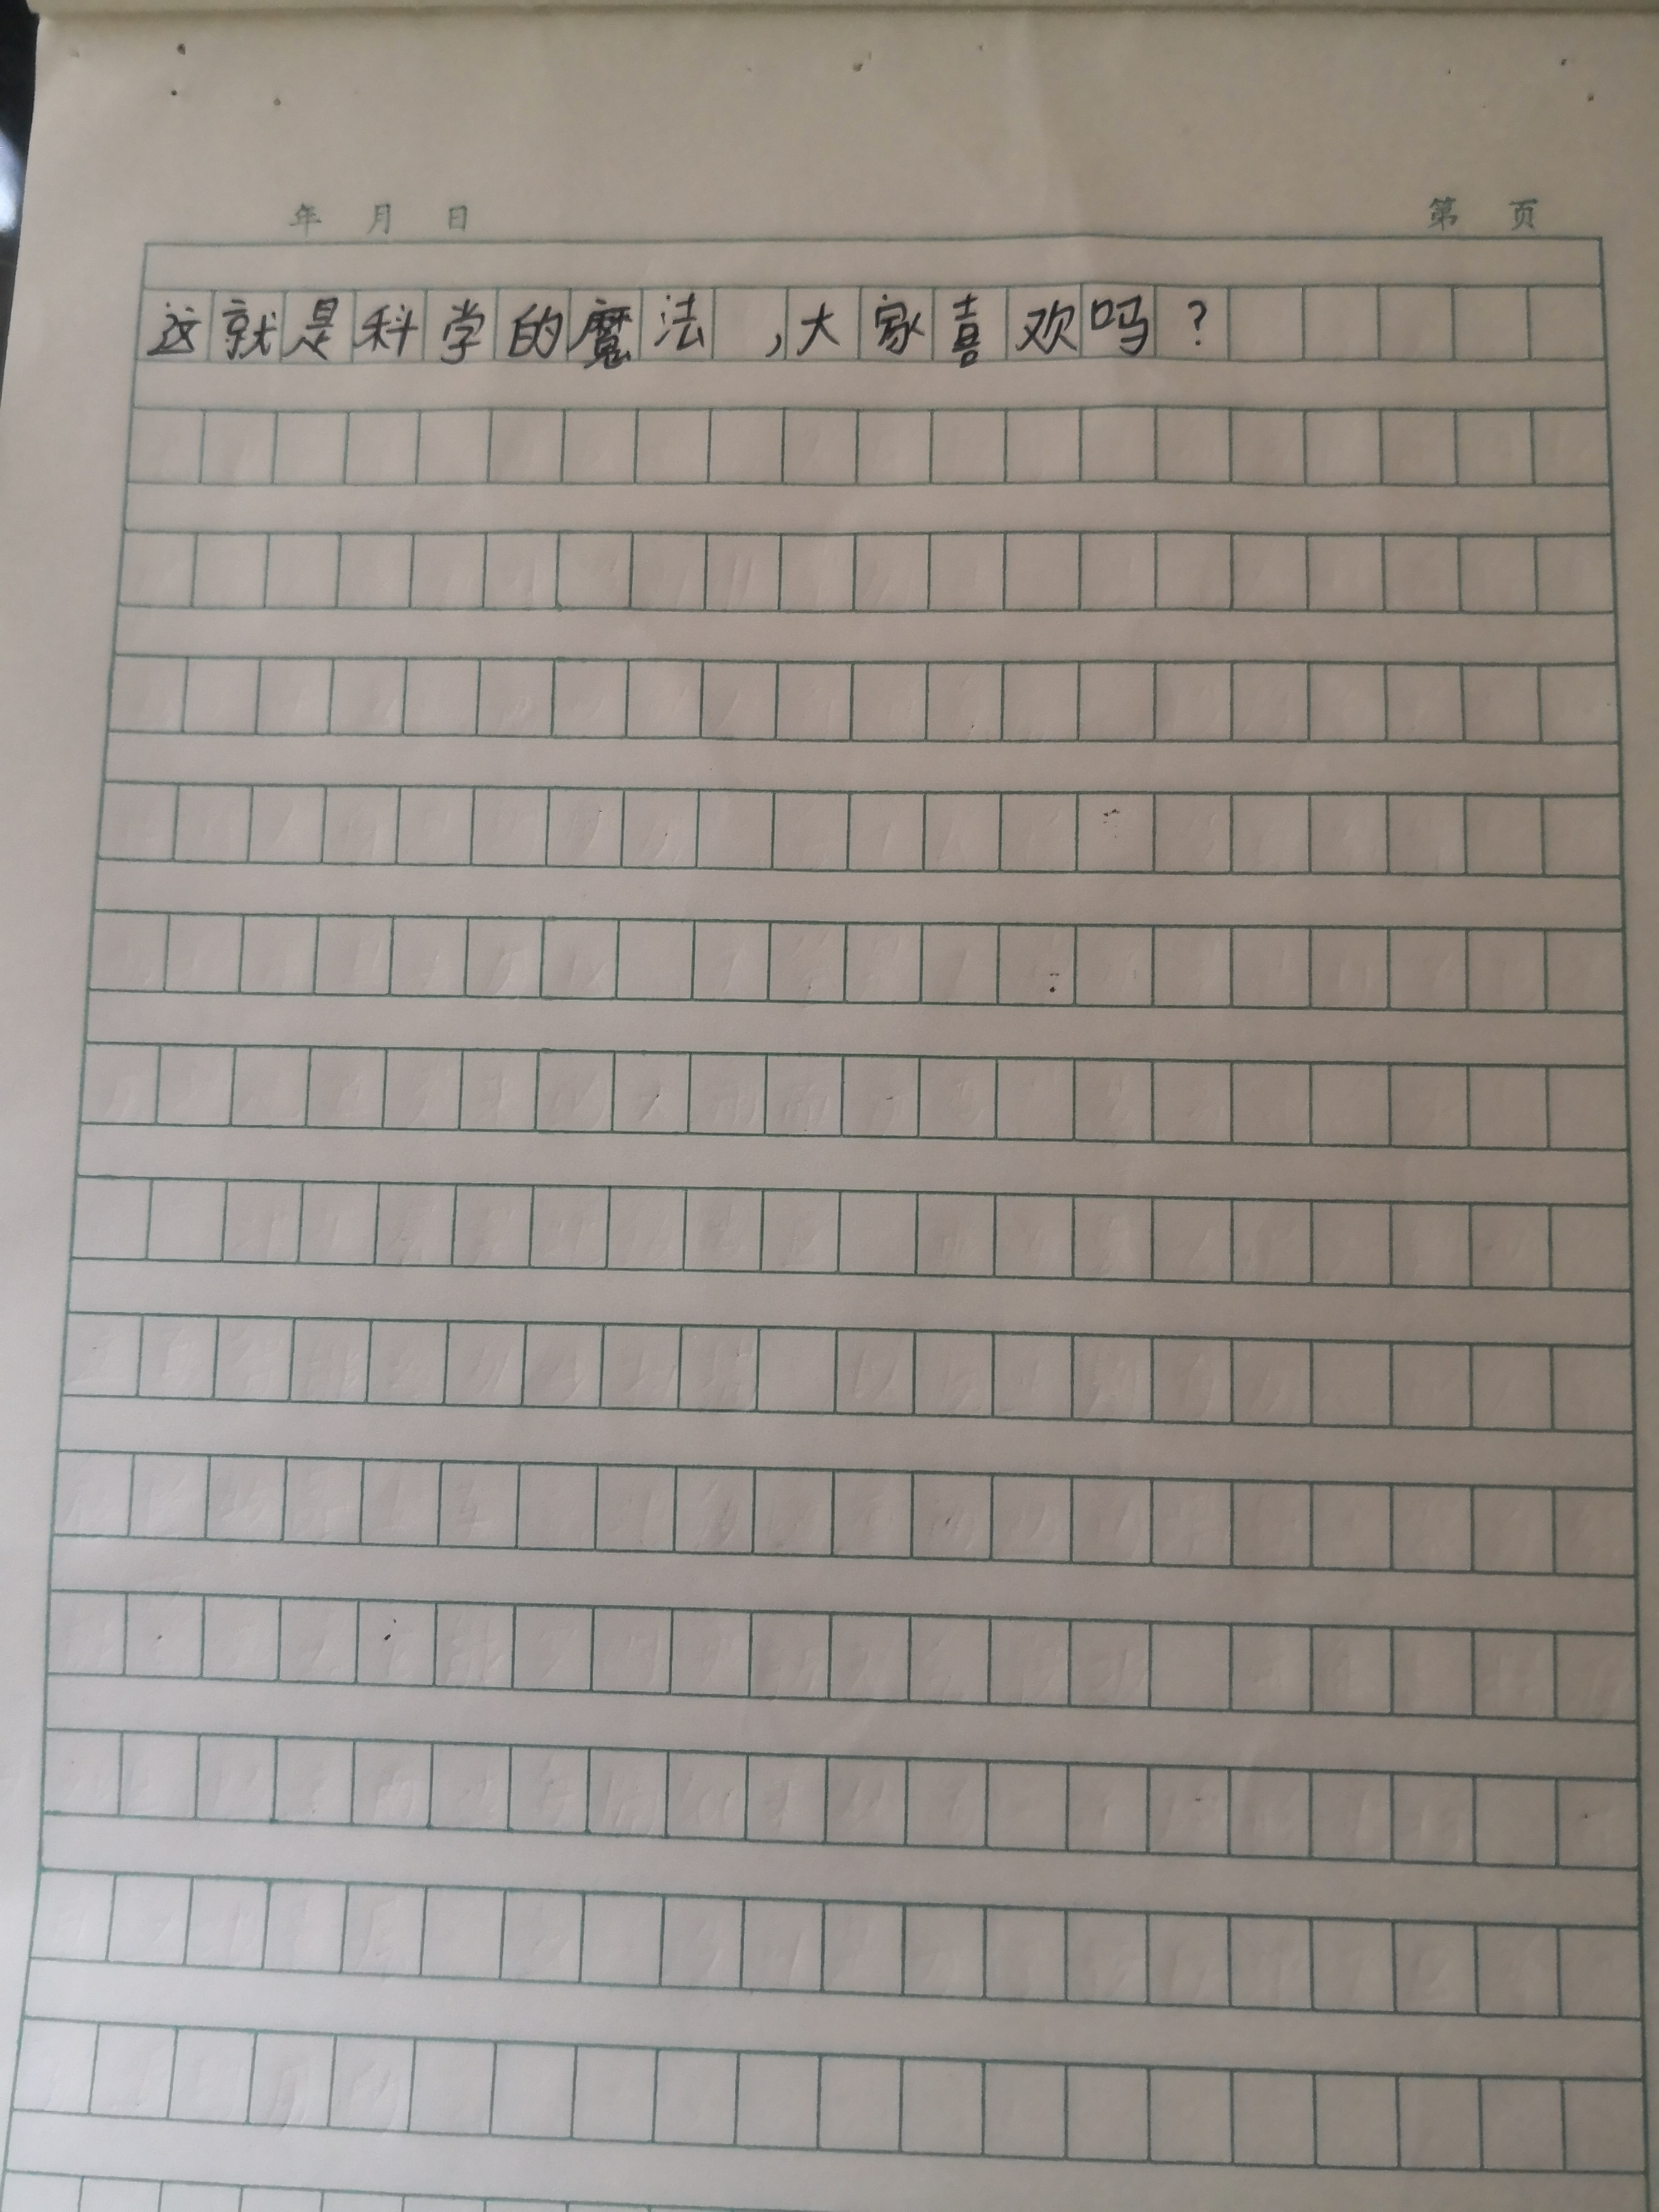 年 月 日 第 页
这就是科学的魔法,大家喜欢吗?